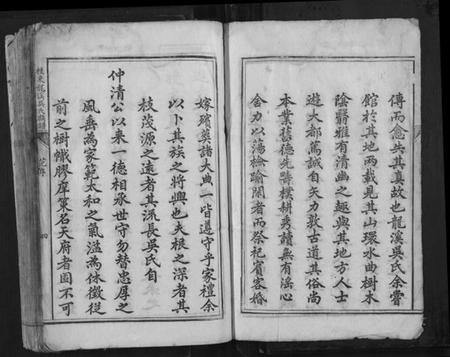 傳而愈失其真故也龍溪吳氏余嘗
館於其地兩載見其山環水曲樹木
陰翳雅有清幽之趣與其地方人士
遊大都篤誠自矢力敦古道其俗尚
本業舊德先疇樸耕秀讀無有淫心
舍力以蕩檢踰閑者而祭祀賓客婚
嫁殯葬諸大典一皆遵守乎家禮余
以卜其族之將興也夫根之深者其
枝茂源之遠者其流長吳氏自
仲清公以來一德相承世守勿替忠厚之
風垂為家範太和之氣溢為休徵從
前之樹幟膠庠策名天府者固不可